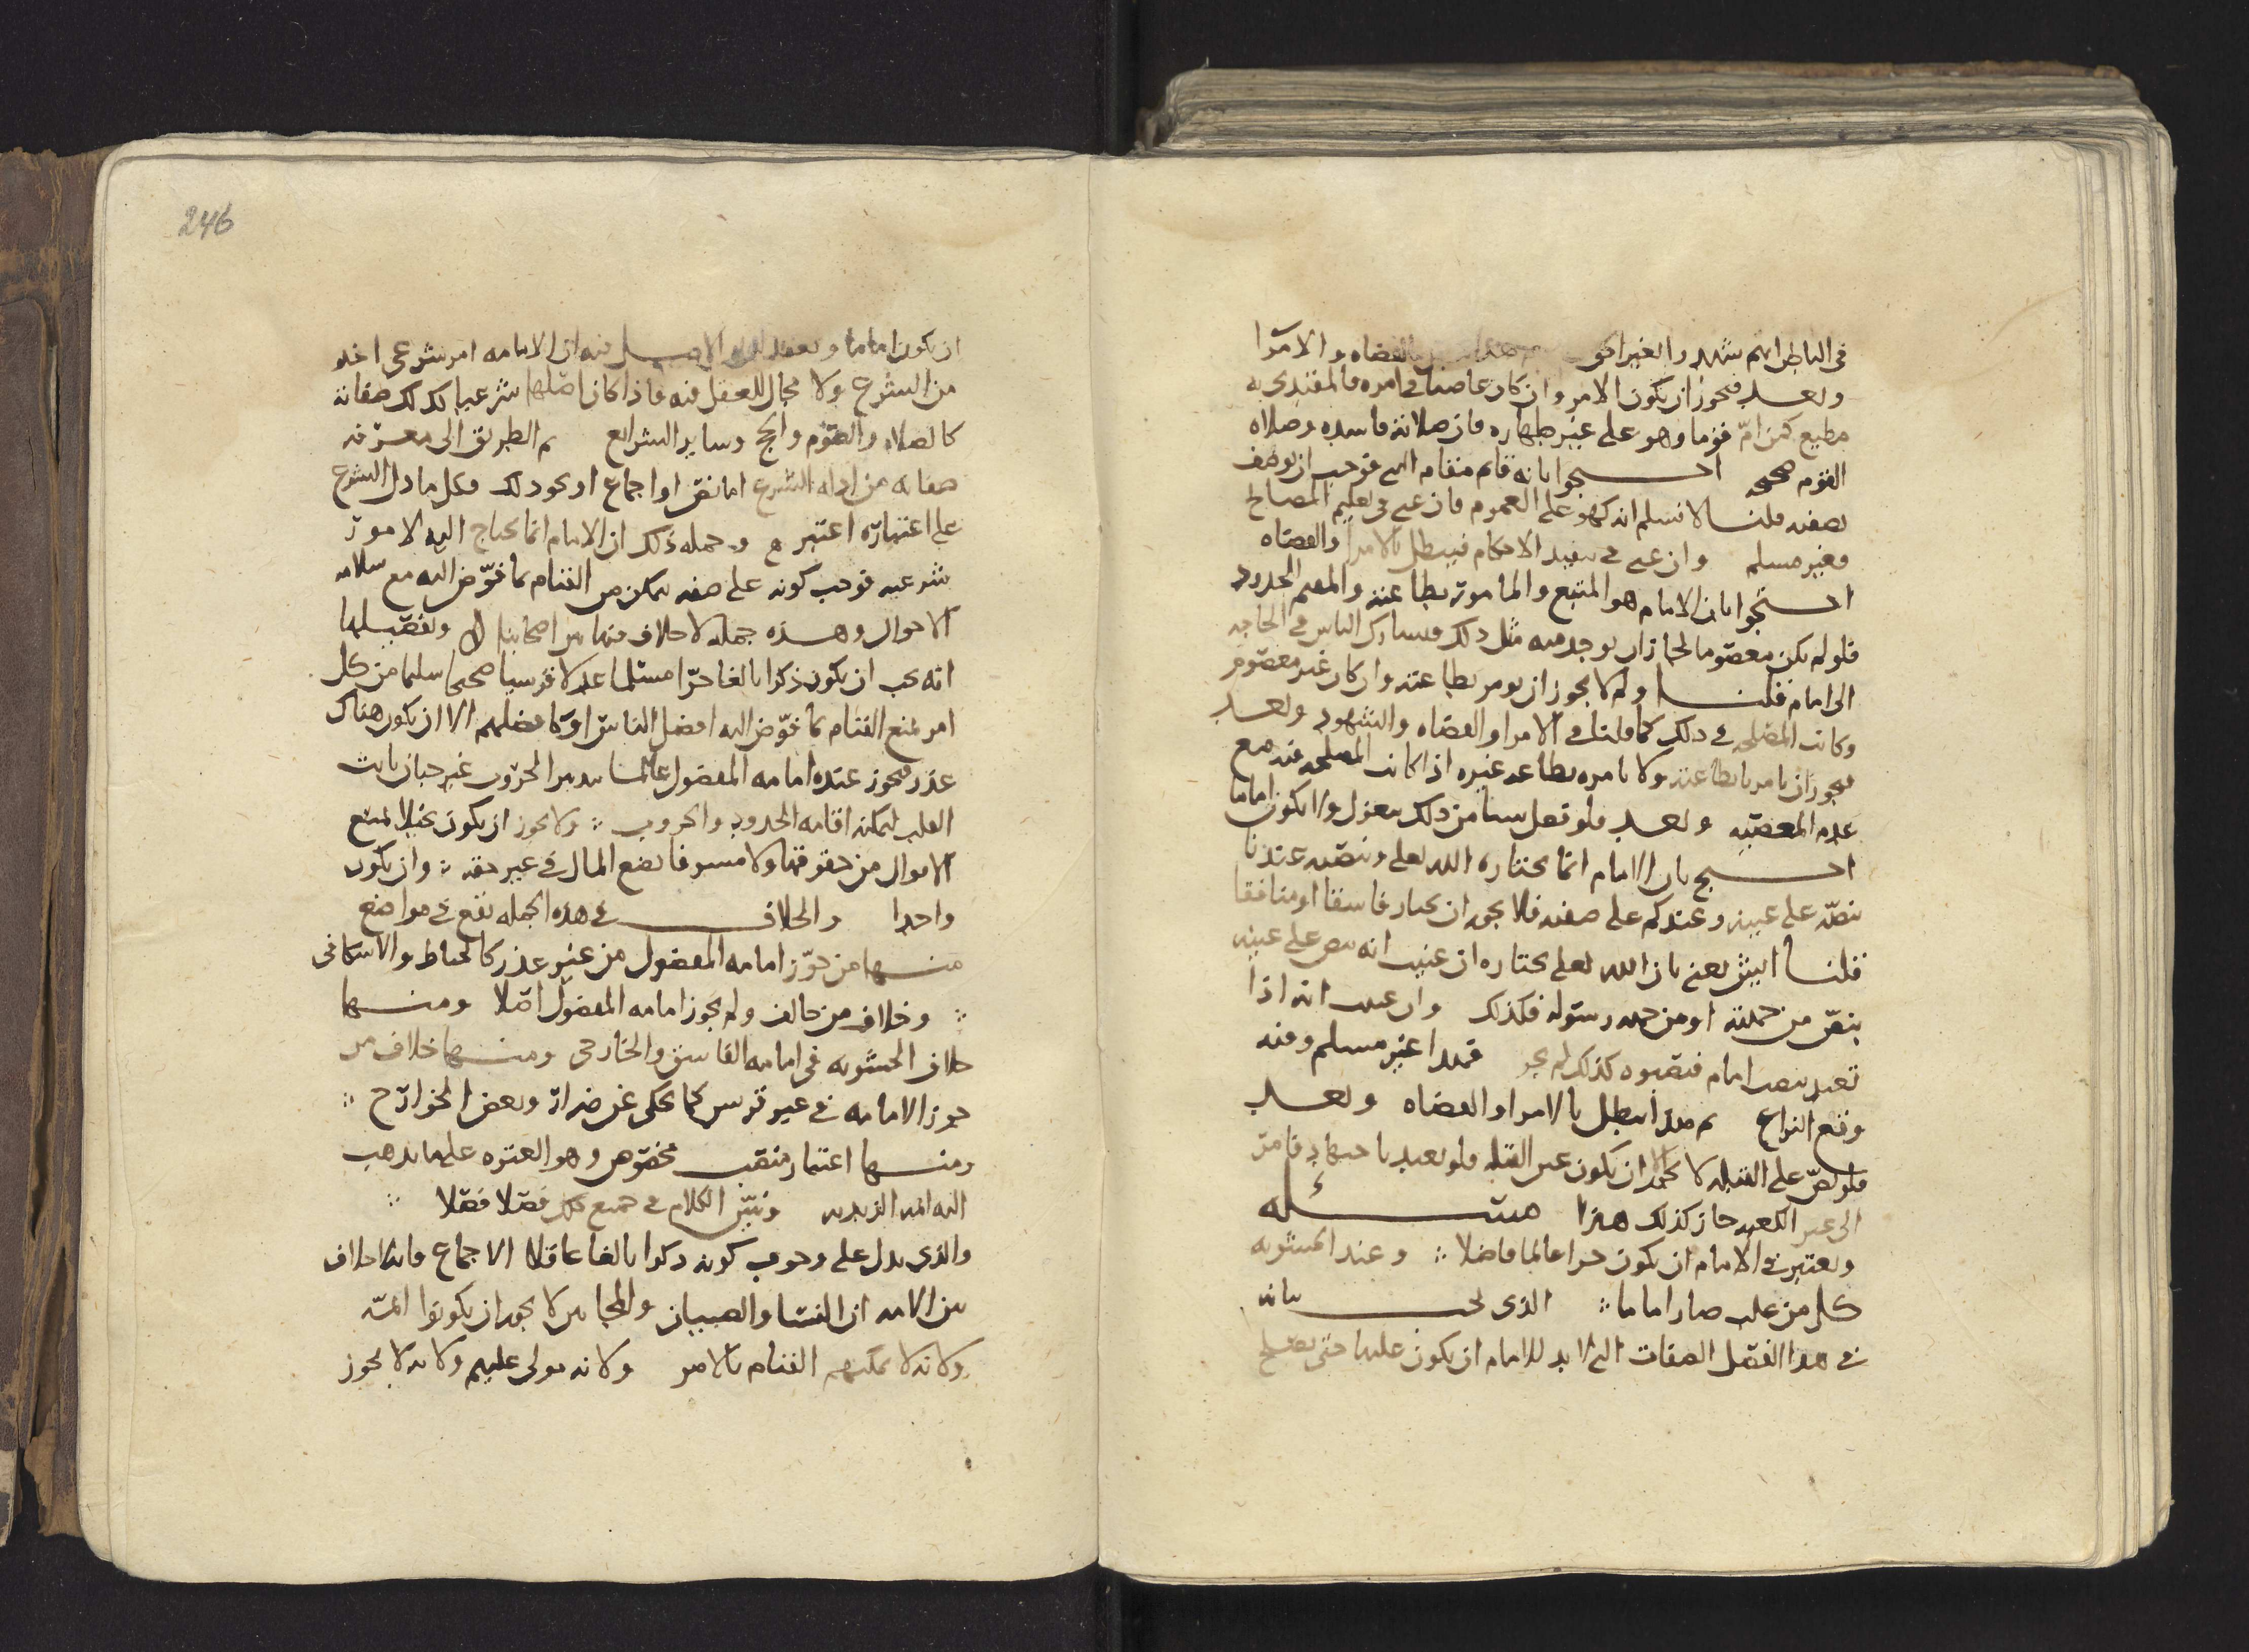 في الباطن انهم شهدوا بغير الحق ثم هذا يبطل بالقضاه والامرا
وبعد فيجوز ان يكون الامر وان كان عاصيا في امره فالمقتدي به
مطيع كمن امّ قوما وهو على غير طهاره فان صلاته فاسده وصلاه
القوم صحيحه احتجوا بانه قائم مقام النبي فوجب ان يوصف
بصفته قلنا لا نسلم انه كهو على العموم فان عني في تعليم المصالح
فغير مسلم وان عني في تنفيذ الاحكام فيبطل بالامرا والقضاه
احتجوا بان الامام هو المتبع والمامور بطاعته والمقيم للحدود
فلو لم يكن معصوما لجاز ان يوجد منه مثل ذلك فيشارك الناس في الحاجه
الى امام فقلنا ولم لا يجوز ان يومر بطاعته وان كان غير معصوم
وكانت المصلحه في ذلك كما قلنا في الامرا والقضاه والشهود وبعد
فيجوز ان يامر بطاعته ولا يامره بطاعه غيره اذا كانت المصلحه فيه مع
عدم المعصيه وبعد فلو فعل شيا من ذلك ينعزل ولا يكون اماما
احتج بان الامام انما يختاره الله تعلى وينصبه عندنا
بنصّه على عينه وعندكم على صفته فلا يجوز ان يختار فاسقا او منافقا
قلنا ايش يعني بان الله تعلى يختاره ان عنيت انه ينص على عينه
بنصّ من جهته او من جهه رسوله فكذلك وان عنيت انه اذا
تعبد بنصب امام فنصبوه كذلك لم يجز فهذا غير مسلم وفيه
وقع النزاع ثم هذا يبطل بالامرا والقضاه وبعد
فلو نصّ على القبله لا يجوز ان يكون غير القبله ولو تعبد باجتهاد فامر
الى غير الكعبه جاز كذلك هذا مسئله
ويعتبر في الامام ان يكون حرا عالما فاضلا وعند الحشويه
كل من غلب صار اماما الذي يجب بيانه
في هذا الفصل الصفات التي لا بد للامام ان يكون عليها حتى يصلح
246
ان يكون اماما وينعقد له والاصل فيه ان الامامه امر شرعي اخذ
من الشرع ولا مجال للعقل فيه فاذا كان اصلها شرعيا كذلك صفاته
كالصلاه والصوم والحج وساير الشرايع ثم الطريق الى معرفه
صفاته من ادله الشرع اما نص او اجماع او نحو ذلك فكل ما دل الشرع
على اعتباره اعتبر وجمله ذلك ان الامام انما يحتاج اليه لامور
شرعيه فوجب كونه على صفه يمكن من القيام بما فوّض اليه مع سلامه
الاحوال وهذه جمله لا خلاف فيها بين اصحابنا وتفصيلها
انه يجب ان يكون ذكرا بالغا حرّا مسلما عدلا قرشيا صحيحا سليما من كل
امر يمنع القيام بما فوّض اليه افضل الناس او كافضلهم الا ان يكون هناك
عذر فيجوز عنده امامه المفضول عالما بتدبير الحروب غير جبان ثابت
القلب ليمكنه اقامه الحدود والحروب ولا يجوز ان يكون بخيلا يمنع
الاموال من حقوقها ولا مسرفا يضع المال في غير حقه وان يكون
واحدا والخلاف في هذه الجمله يقع في مواضع
منها من جوّز امامه المفضول من غير عذر كالخياط والاسكافي
وخلاف من خالف ولم يجوز امامه المفضول اصلا ومنها
خلاف الحشويه في امامه الفاسق والخارجي ومنها خلاف من
جوز الامامه في غير قريش كما يحكى عن ضرار وبعض الخوارج
ومنها اعتبار منصب مخصوص وهو العتره على ما يذهب
اليه ائمه الزيديه ونبيّن الكلام في جميع ذلك فصلا فصلا
والذي يدل على وجوب كونه ذكرا بالغا عاقلا الاجماع فانه لا خلاف
بين الامه ان النسا والصبيان والمجانين لا يجوز ان يكونوا ائمّه
ولانه لا يمكنهم القيام بالامر ولانه مولى عليهم ولانه لا يجوز